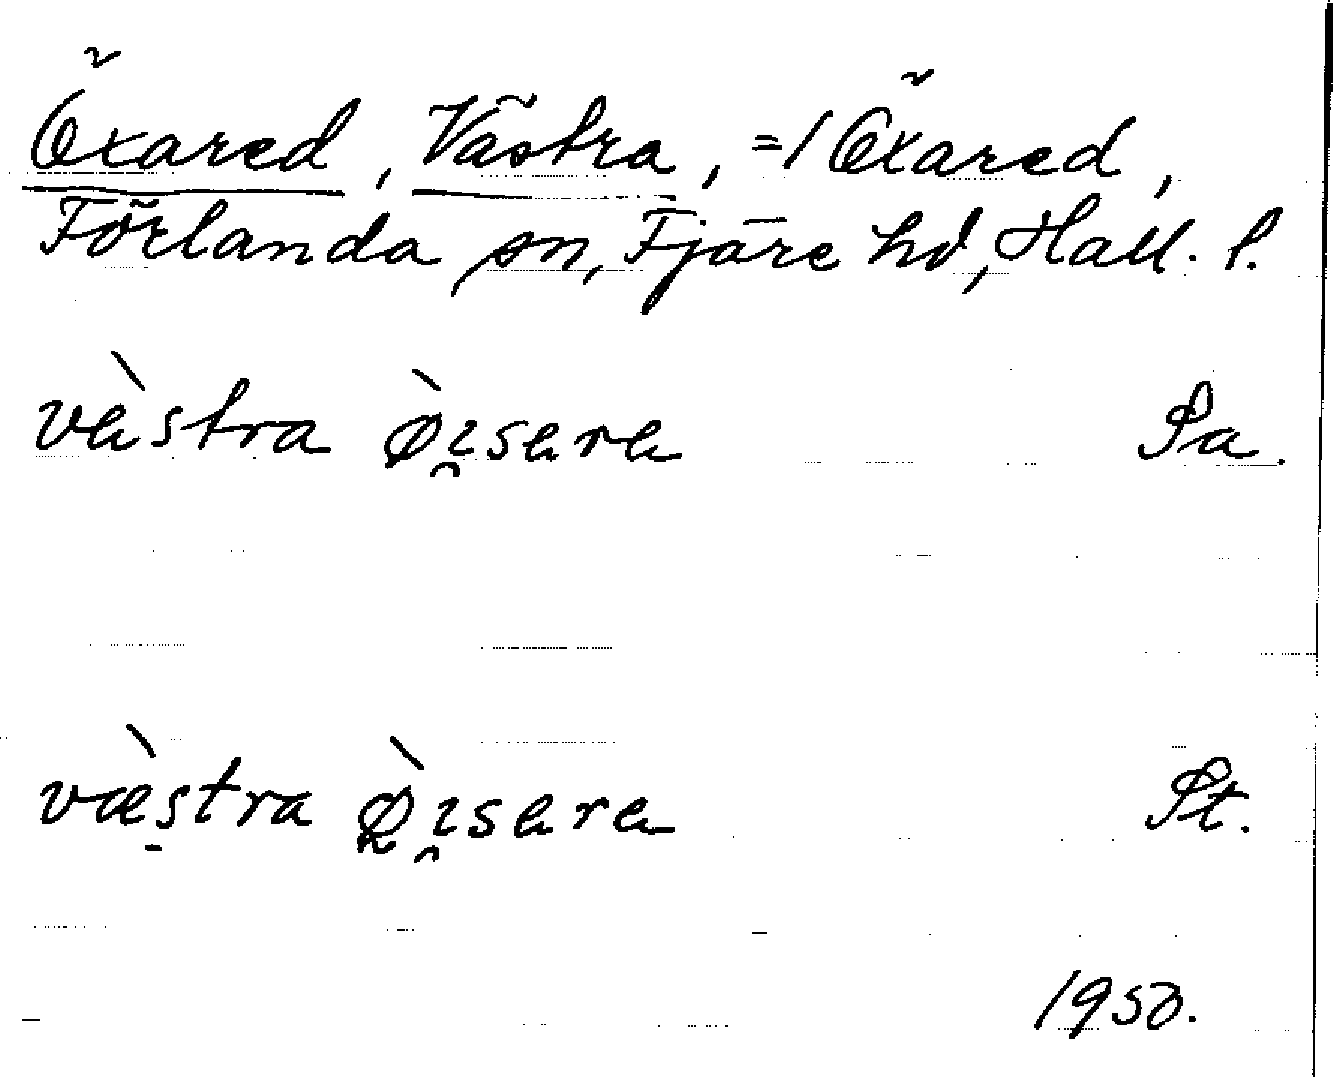 Öxared, Västra, =/Öxared,
Förlanda sn, Fjäre hd, Hall. l.
vèstra ø̀i̯sare Sa.
væ̠̀stra ø̀i̯sare St.
1950.